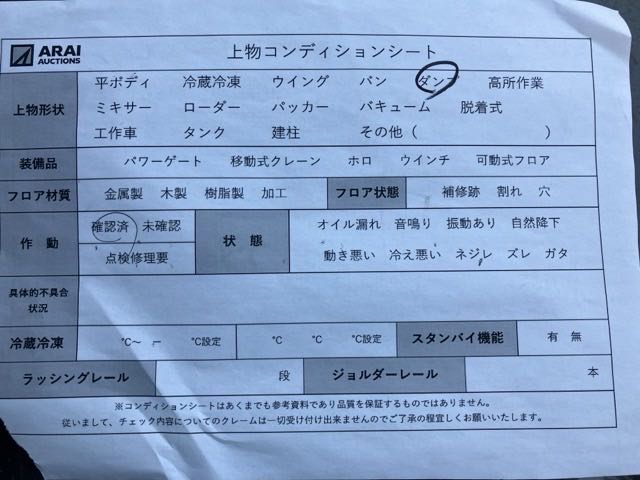 ARAI
AUCTIONS
上物コンディションシート
上物形状
平ボディ 冷蔵冷凍 ウイング バン ダンプ 高所作業
ミキサー ローダー パッカー バキューム 脱着式
工作車 タンク 建柱 その他 ( )
装備品 パワーゲート 移動式クレーン ホロ ウインチ 可動式フロア
フロア材質 金属製 木製 樹脂製 加工 フロア状態 補修跡 割れ 穴
作動 確認済 未確認
点検修理要
状態 オイル漏れ 音鳴り 振動あり 自然降下
動き悪い 冷え悪い ネジレ ズレ ガタ
具体的不具合
状況
冷蔵冷凍 ℃〜 ℃設定 ℃ ℃ ℃設定 スタンバイ機能 有 無
ラッシングレール 段 ジョルダーレール 本
※コンディションシートはあくまでも参考資料であり品質を保証するものではありません。
従いまして、チェック内容についてのクレームは一切受け付け出来ませんのでご了承の程宜しくお願いいたします。